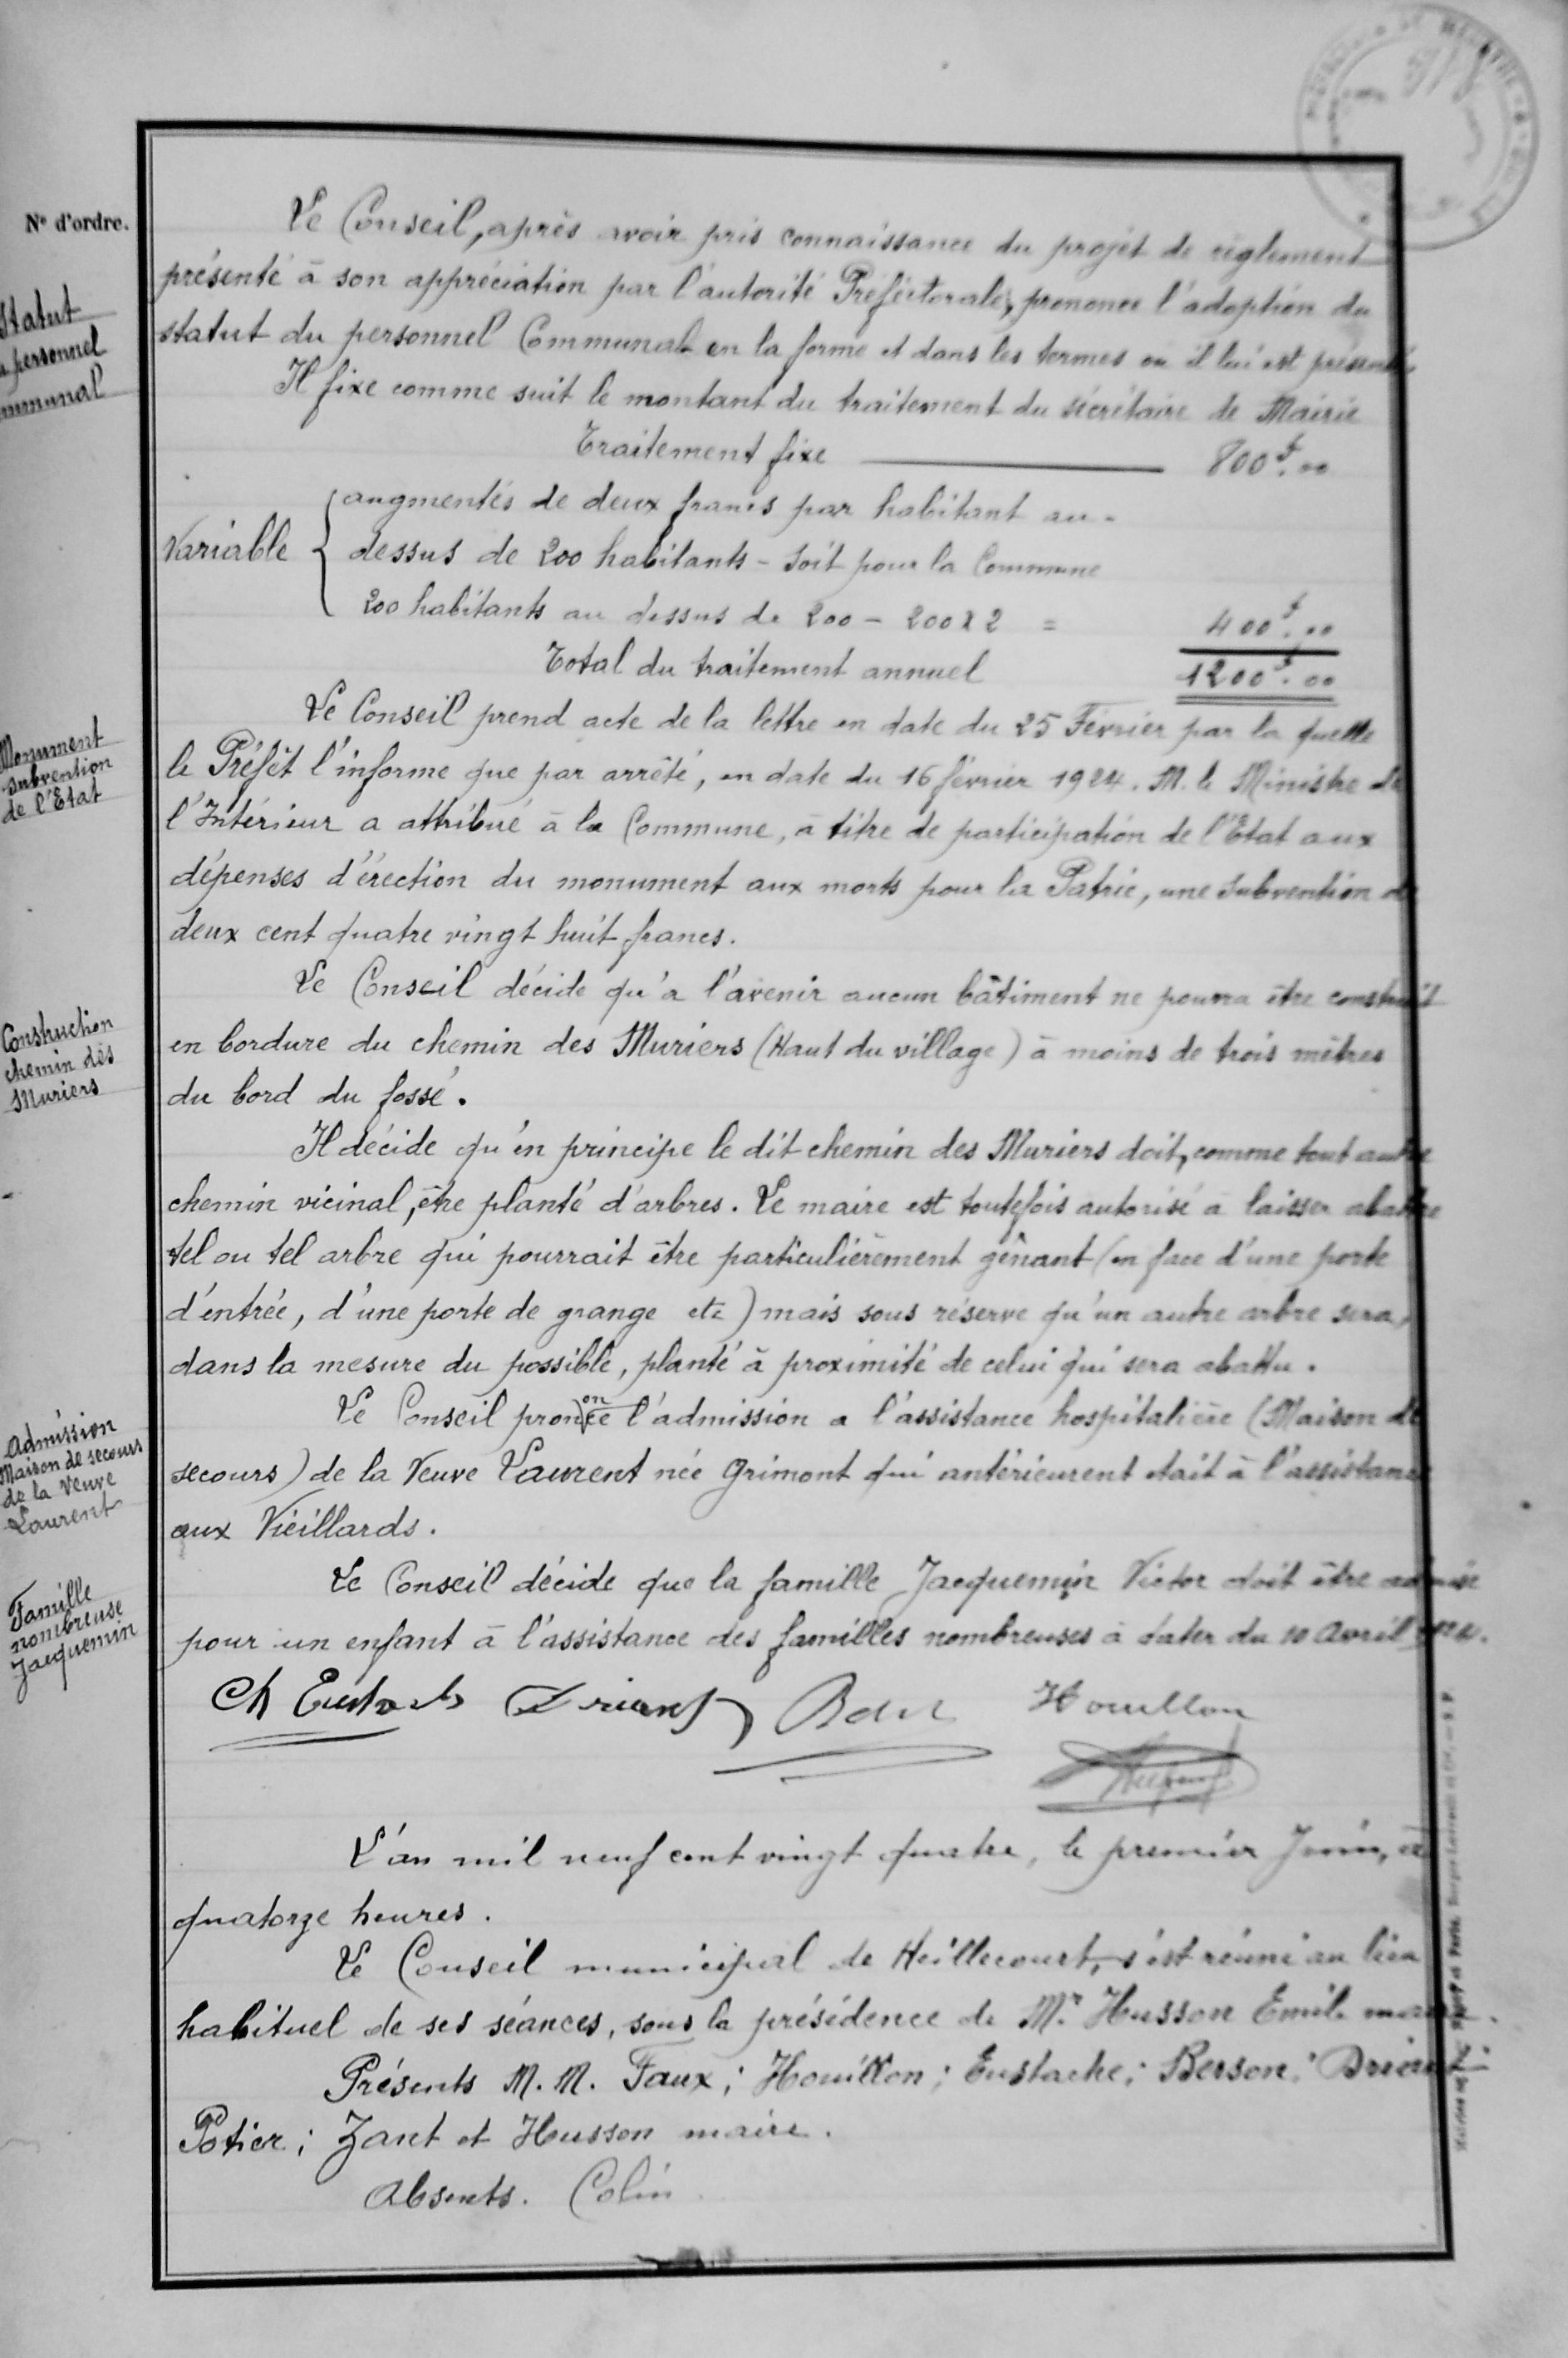 N° d'ordre.
Statut
personnel
Le Conseil, après avoir pris connaissance du projet de règlement
présenté à son appréciation par l'autorité Préféctorale, prononce l'adoption du
statut du personnel Communal en la forme et dans les termes où il lui est présenté
Il fixe comme suit le montant du traitement du sécrétaire de Mairie
Traitement fixe 800f.00
augmentés de deux francs par habitant au-
Variable dessus de 200 habitants - soit pour la Commune
200 habitants au dessus de 200 - 200 x 2 = 400f.00
Total du traitement annuel 1200f.00
Monument
subvention
de l'Etat
Le Conseil prend acte de la lettre en date du 25 Février par la quelle
le Préfêt l'informe que par arrêté, en date du 16 février 1924. M. le Ministre de
l'Intérieur a attribué à la Commune, à titre de participation de l'Etat aux
dépenses d'érection du monument aux morts pour la Patrie, une subvention de
deux cent quatre vingt huit francs.
Construction
chemin des
Muriers
Le Conseil décide qu'a l'avenir aucun bâtiment ne pourra être construit
en bordure du chemin des Muriers (Haut du village) à moins de trois mètres
du bord du fossé.
Il décide qu'en principe le dit chemin des Muriers doit, comme tout autre
chemin vicinal, être planté d'arbres. Le maire est toutefois autorisé à laisser abattre
tel ou tel arbre qui pourrait être particulièrement gênant (en face d'une porte
d'entrée, d'une porte de grange etc) mais sous réserve qu'un autre arbre sera,
dans la mesure du possible, planté à proximité de celui qui sera abattu.
Admission
Maison de secours
de la Veuve
Laurent
Le Conseil prononce l'admission a l'assistance hospitalière (Maison de
secours) de la Veuve Laurent née Grimont qui antérieurent était à l'assistance
aux Vieillards.
Famille
nombreuse
Jacquemin
Le Conseil décide que la famille Jacquemin Victor doit être admise
pour un enfant à l'assistance des familles nombreuses à dater du 10 Avril 1924.
Ch Eustache Driant Houillon
L'an mil neuf cent vingt quatre, le premier Juin, à
quatorze heures.
Le Conseil municipal de Heillecourt, s'est réuni au lieu
habituel de ses séances, sous la présidence de Mr. Husson Emile maire.
Présents M. M. Faux; Houillon; Eustache; Berson; Driant;
Potier; Zant et Husson maire.
Absents. Colin